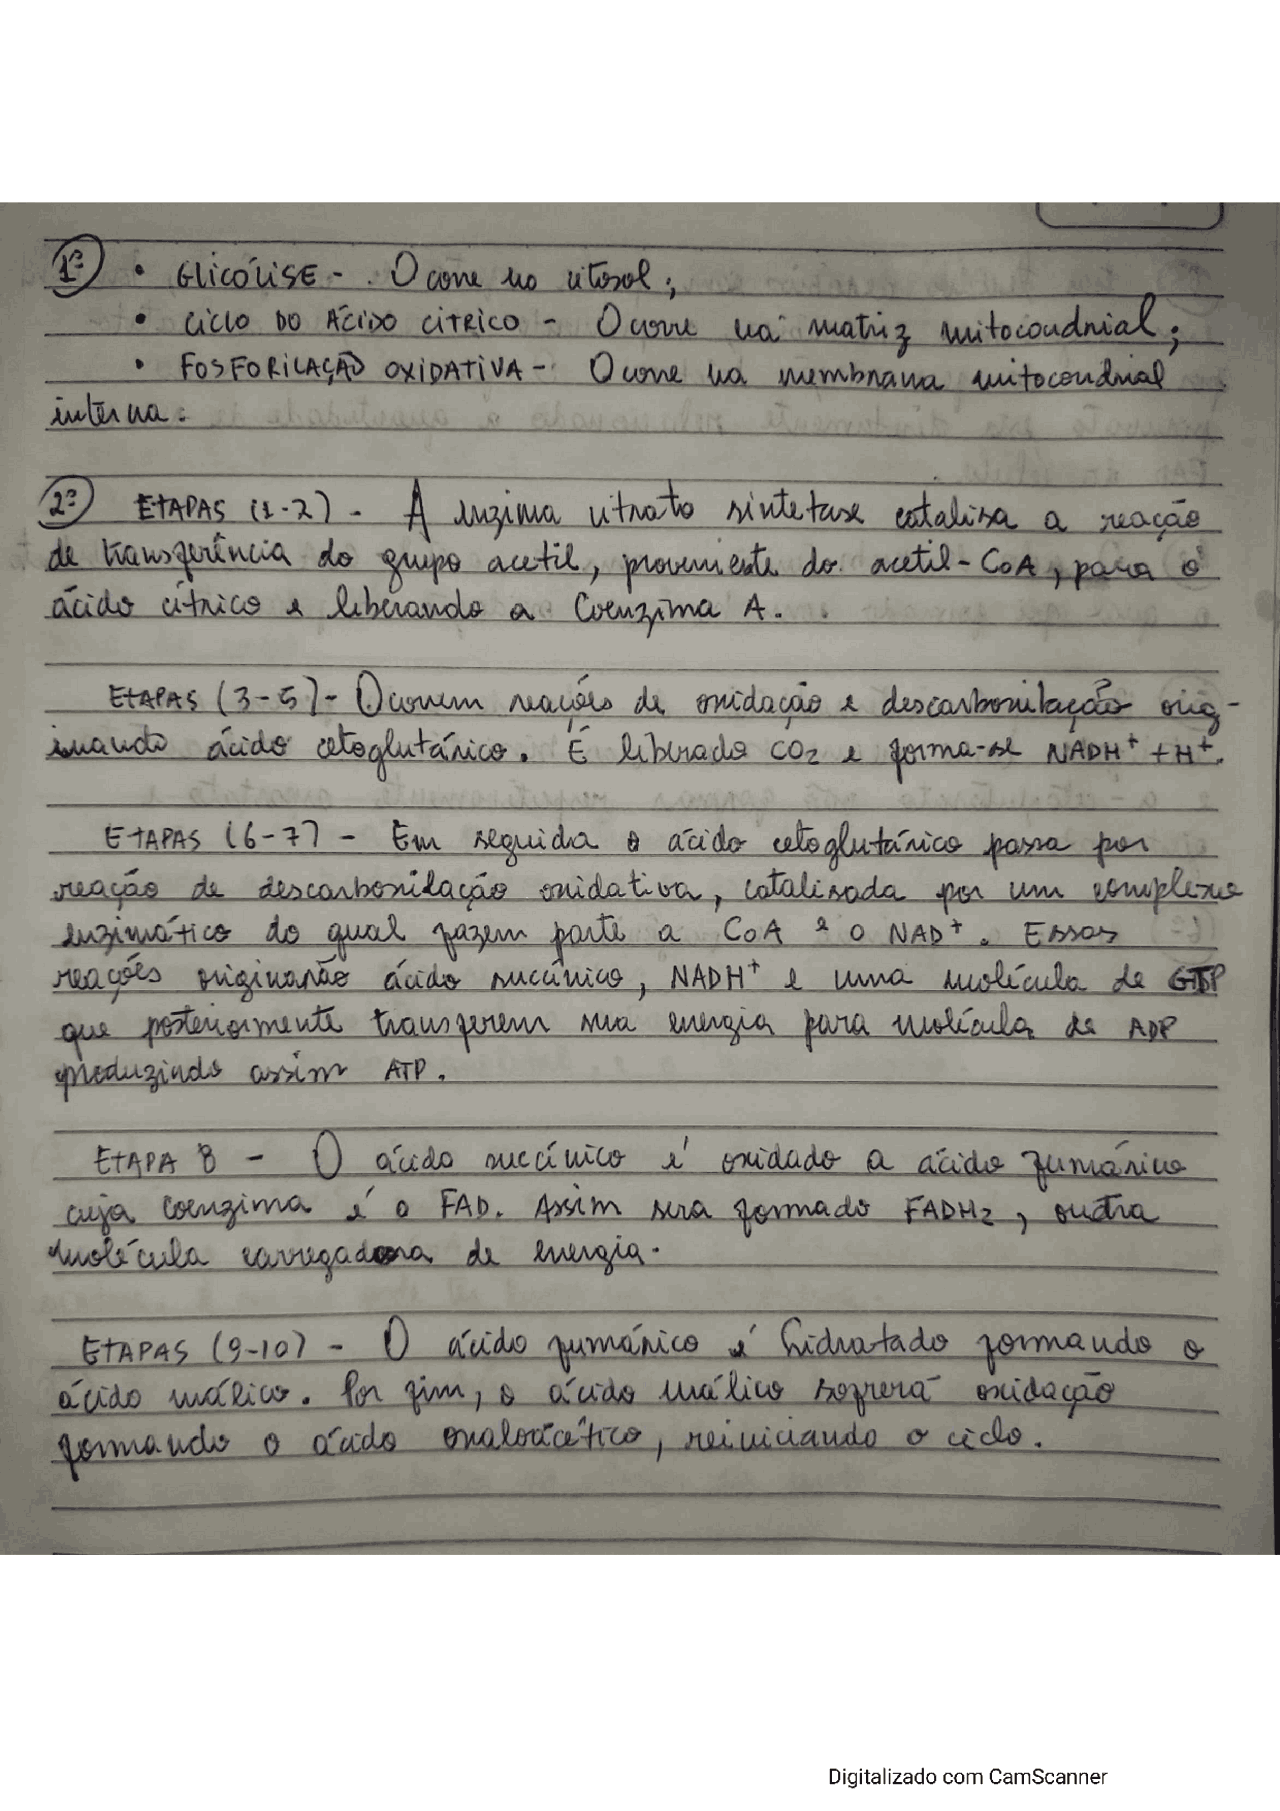 1ª • GLICÓLISE - Ocorre no citosol;
• CICLO DO ÁCIDO CÍTRICO - Ocorre na matriz mitocondrial;
• FOSFORILAÇÃO OXIDATIVA - Ocorre na membrana mitocondrial
interna.
2ª ETAPAS (1-2) - A enzima citrato sintetase catalisa a reação
de transferência do grupo acetil, proveniente do acetil-CoA, para o
ácido cítrico e liberando a Coenzima A.
ETAPAS (3-5) - Ocorrem reações de oxidação e descarboxilação orig-
inando ácido cetoglutárico. É liberado CO₂ e forma-se NADH⁺ + H⁺.
ETAPAS (6-7) - Em seguida o ácido cetoglutárico passa por
reação de descarboxilação oxidativa, catalisada por um complexo
enzimático do qual fazem parte a CoA e o NAD⁺. Essas
reações originarão ácido succínico, NADH⁺ e uma molécula de GTP
que posteriormente transferem sua energia para molécula de ADP
produzindo assim ATP.
ETAPA 8 - O ácido succínico é oxidado a ácido fumárico
cuja coenzima é o FAD. Assim sera formado FADH₂, outra
molécula carregadora de energia.
ETAPAS (9-10) - O ácido fumárico é hidratado formando o
ácido málico. Por fim, o ácido málico sofrerá oxidação
formando o ácido oxaloacético, reiniciando o ciclo.
Digitalizado com CamScanner